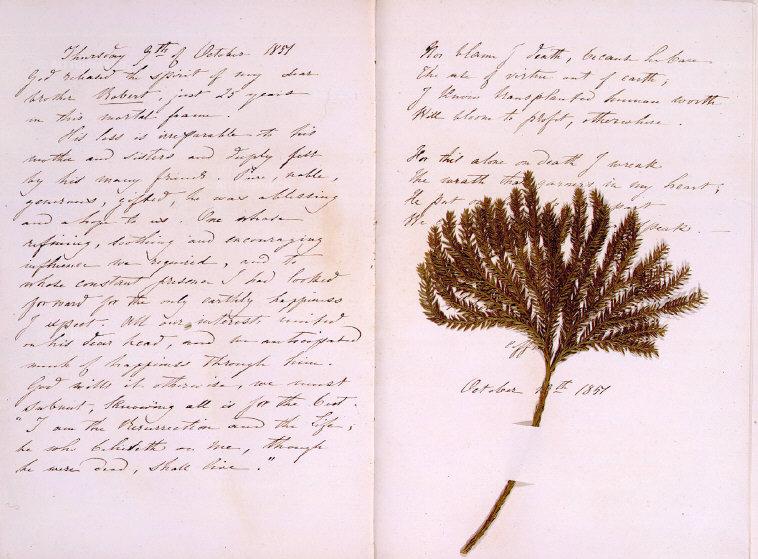 Thursday 9th of October 1851
God released the spirit of my dear
brother Robert, just 25 years
in this mortal frame.
His loss is irreparable to his
mother and sisters and deeply felt
by his many friends. Pure, noble,
generous, gifted, he was a blessing
and a hope to us. One whose
refining, soothing and encouraging
influence we required, and to
whose constant presence I had looked
forward for the only earthly happiness
I expect. All our interests united
on his dear head, and we anticipated
much of happiness through him.
God wills it otherwise, we must
submit, knowing all is for the best.
"I am the Resurrection and the Life;
he who believeth on me, though
he were dead, shall live."
Nor blame I death, because he bare
The use of virtue out of earth;
I know transplanted human worth
Will bloom to profit, otherwhere.
For this alone on death I wreak
The wrath that garners in my heart;
He put
We speak.
October 1851